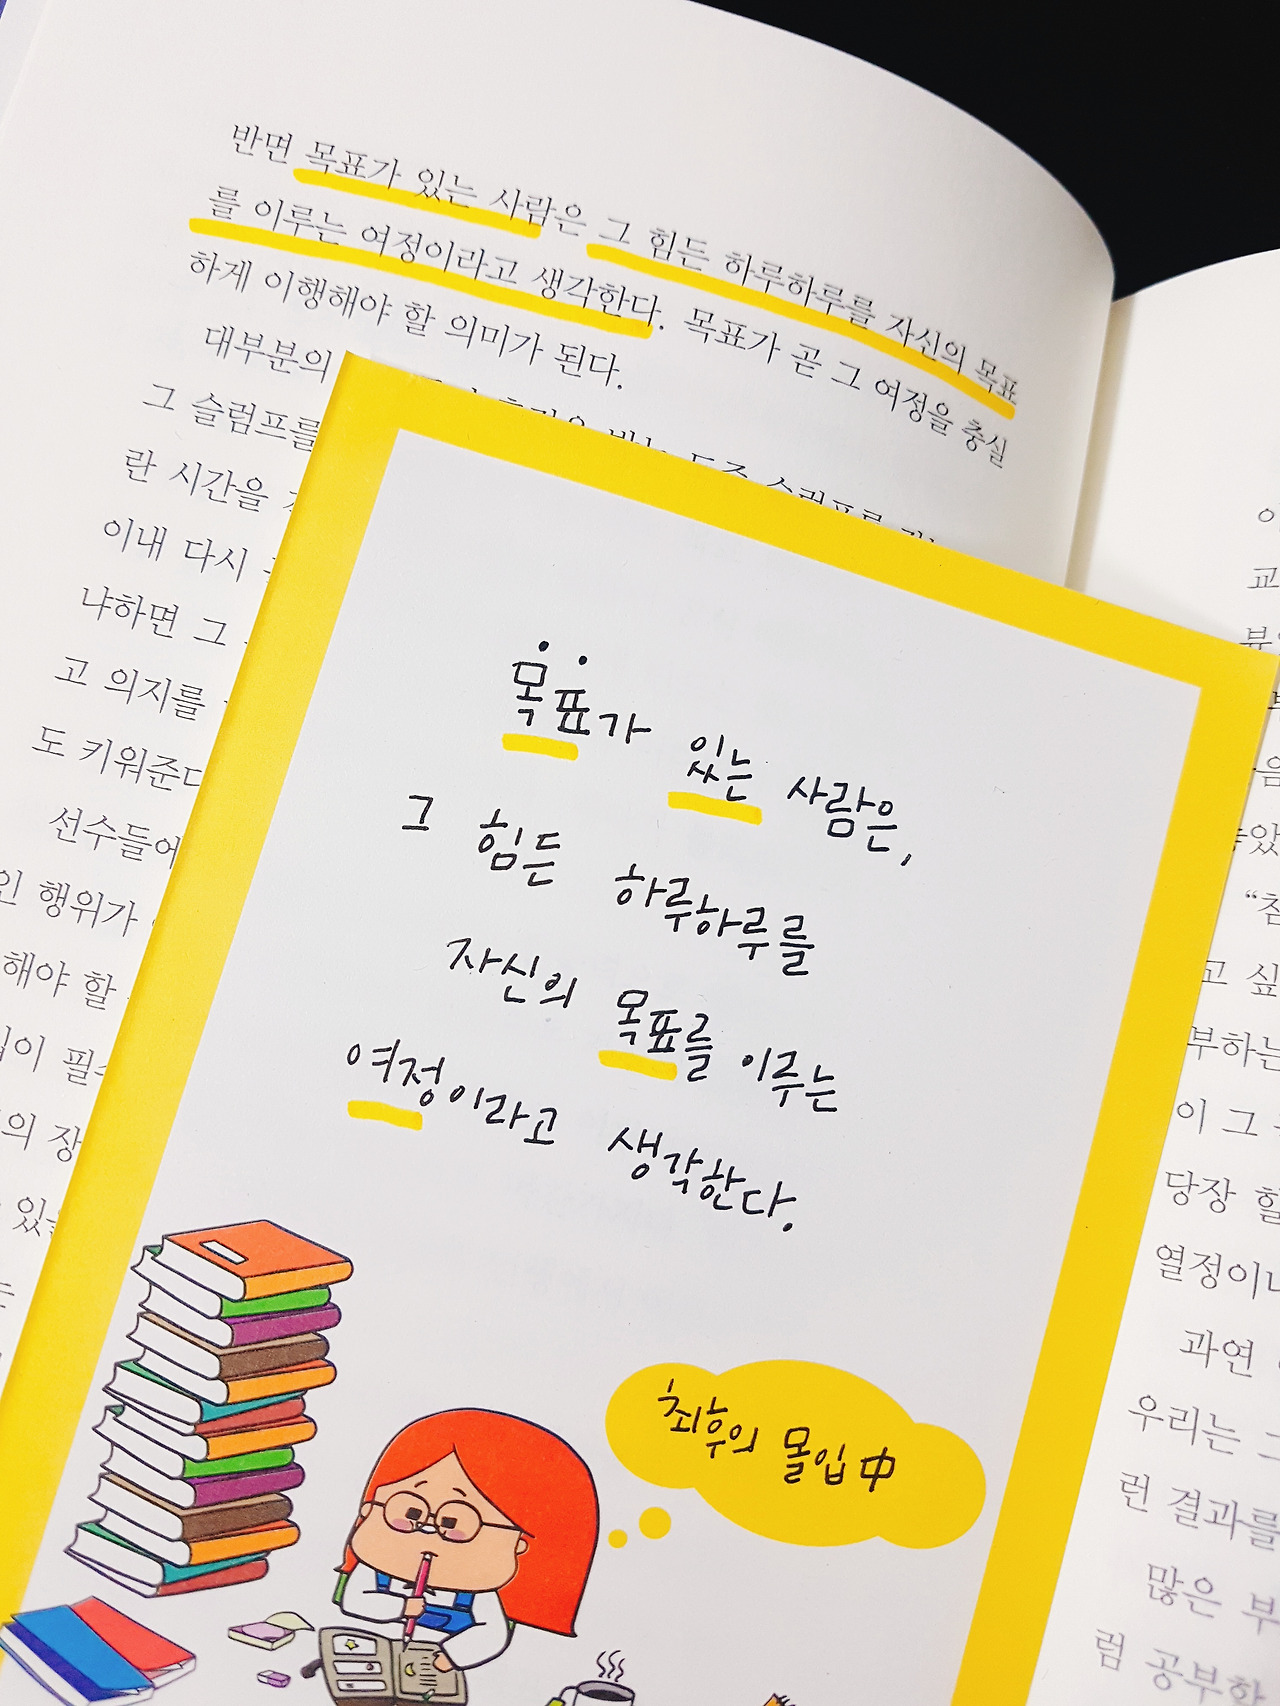 반면 목표가 있는 사람은 그 힘든 하루하루를 자신의 목표
를 이루는 여정이라고 생각한다. 목표가 곧 그 여정을 충실
하게 이행해야 할 의미가 된다.
대부분의
그 슬럼프를
란 시간을
이내 다시
냐하면 그
고 의지를
도 키워준다
선수들에
인 행위가
해야 할
의 장
목표가 있는 사람은,
그 힘든 하루하루를
자신의 목표를 이루는
여정이라고 생각한다.
최후의 몰입 中
교
고 싶
부하는
이 그
당장 할
열정이나
과연
우리는 그
런 결과를
많은 부
럼 공부할